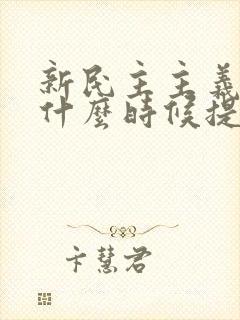 新民主主義
什麼時候提
卞慧君